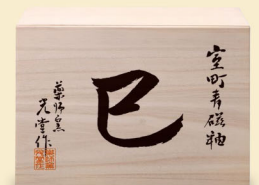 室町青磁釉
巳
薬師窯
光堂作